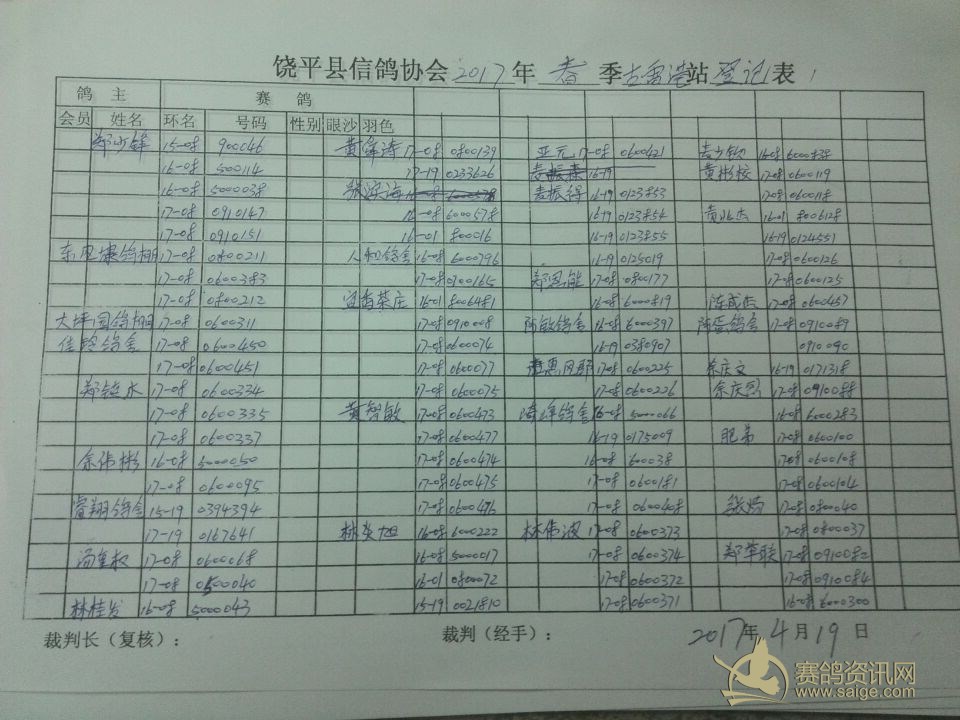 饶平县信鸽协会2017年 春 季古雷港站登记表
鸽 主 赛 鸽
会员 姓名 环名 号码 性别 眼沙 羽色
15-08 900046 17-08 0800139 亚元 17-08 0600421
16-08 500114 17-19 0233626 16-19 黄彬校 17-08 0600119
16-08 5000038 麦振得 16-19 0123853 17-08 0600118
17-08 0910147 16-08 6000578 16-19 0123854 16-01 8006128
17-08 0910151 16-01 800016 16-19 0123855 16-19 0124551
17-08 0800211 人和鸽舍 16-08 6000796 16-19 0125019 17-08 0600126
17-08 0600383 17-08 0700165 17-08 0800177 17-08 0600125
17-08 0800212 16-01 8006481 16-08 6000819 陈成杰 17-08 0600457
大坪园鸽棚 17-08 0600311 17-08 0910008 陈敏鸽舍 16-08 6000397 17-08 0910089
佳玲鸽舍 17-08 0600450 17-08 0600074 16-19 0380907 0910090
17-08 0600451 17-08 0600077 17-08 0600225 余庆文 16-19 0171318
17-08 0600334 17-08 0600075 17-08 0600226 17-08 0910088
17-08 0600335 黄智敏 17-08 0600473 16-08 5000066 16-08 6000283
17-08 0600337 17-08 0600477 16-19 0175009 17-08 0600100
余伟彬 16-08 5000050 17-08 0600474 16-08 17-08 0600108
17-08 0600095 17-08 0600475 17-08 0600181 17-08 0600104
睿翔鸽舍 15-19 0394394 17-08 0600476 17-08 0600408 17-08 0800040
17-19 0167641 林炎旭 16-08 6000222 林伟波 17-08 0600373 17-08 0800037
17-08 0600068 16-08 5000017 17-08 0600374 郑草联 17-08 0910082
17-08 0500040 16-01 0800072 17-08 0600372 17-08 0910084
林桂发 16-08 5000043 15-19 0021810 17-08 0600371 16-08 6000300
裁判长（复核）： 裁判（经手）： 2017年 4月 19日
赛鸽资讯网
www.saige.com